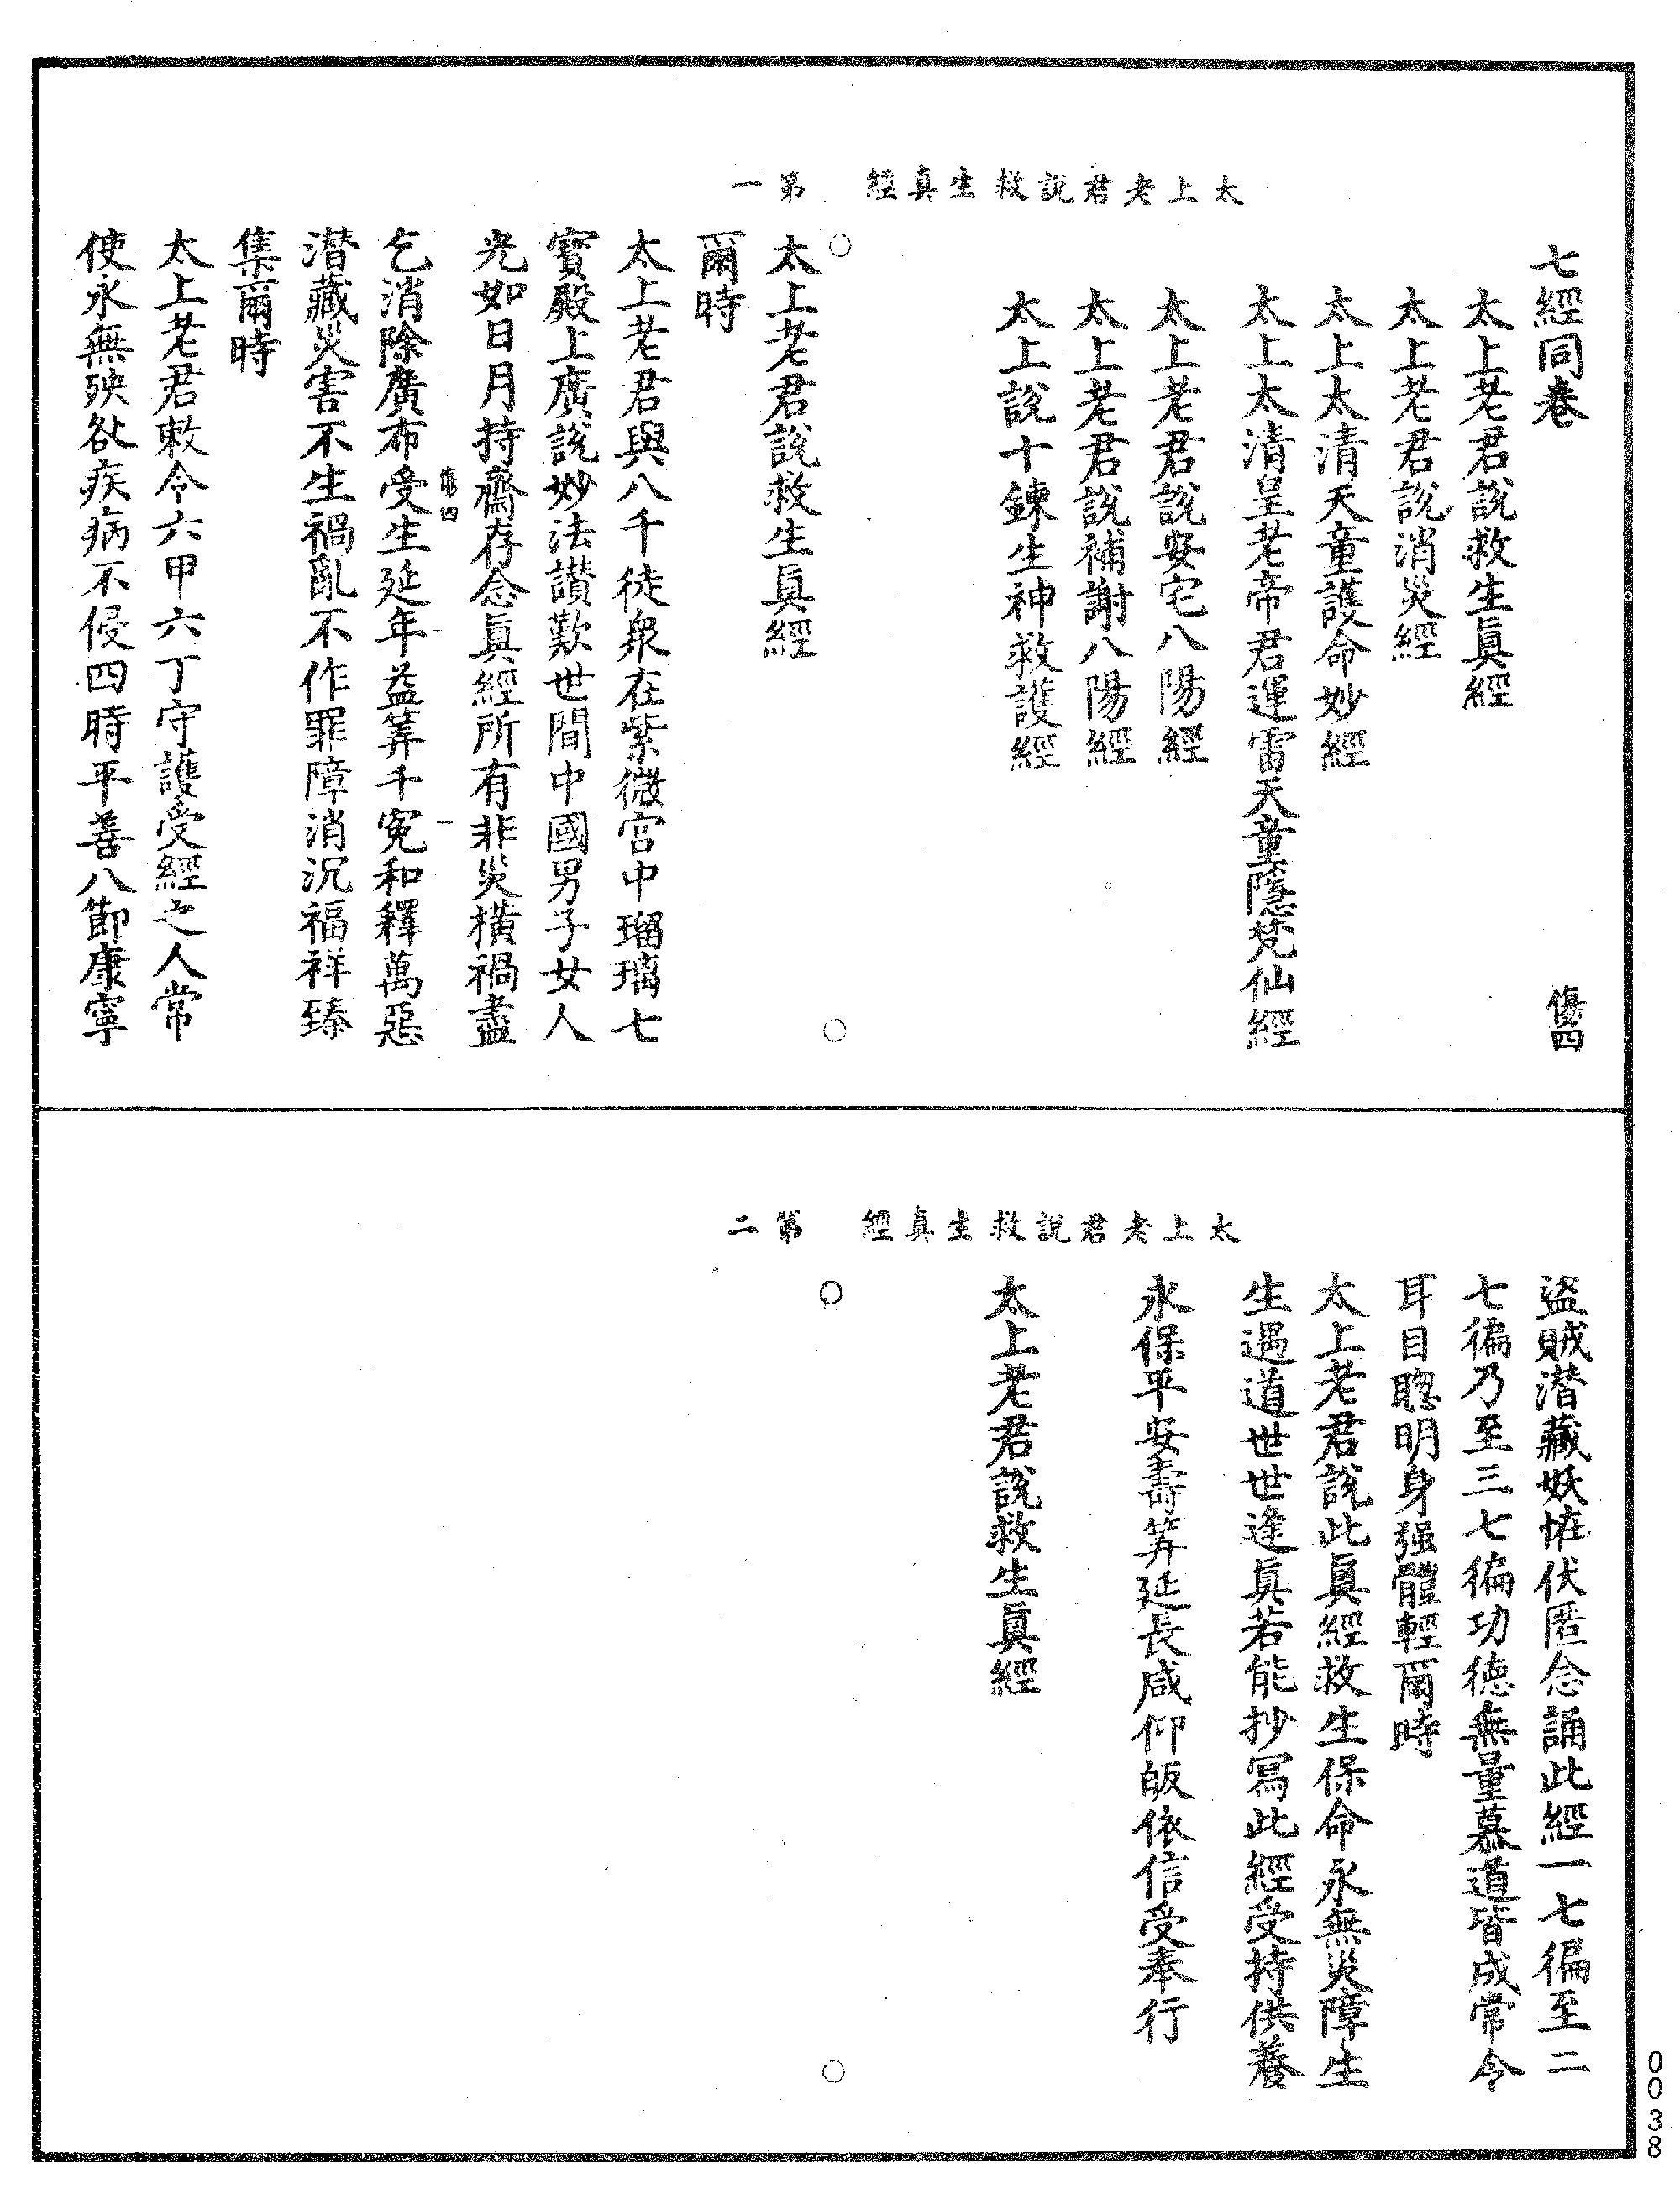 太上老君說救生真經　第一
七經同卷　傷四
太上老君說救生眞經
太上老君說消災經
太上太清天童護命妙經
太上太清皇老帝君運雷天童隱梵仙經
太上老君說安宅八陽經
太上老君說補謝八陽經
太上說十鍊生神救護經
太上老君說救生眞經
爾時
太上老君與八千徒衆在紫微宮中瑠璃七
寳殿上廣說妙法讃歎世間中國男子女人
光如日月持齋存念眞經所有非災橫禍盡
傷四　一
乞消除廣布受生延年益筭千寃和釋萬惡
潛藏災害不生禍亂不作罪障消沉福祥臻
集爾時
太上老君敕令六甲六丁守護受經之人常
使永無殃咎疾病不侵四時平善八節康寧
太上老君說救生真經　第二
盜賊潛藏妖恠伏匿念誦此經一七徧至二
七徧乃至三七徧功德無量慕道皆成常令
耳目聦明身强體輕爾時
太上老君說此眞經救生保命永無災障生
生遇道世世逢眞若能抄冩此經受持供養
永保平安壽筭延長咸仰皈依信受奉行
太上老君說救生眞經
0038